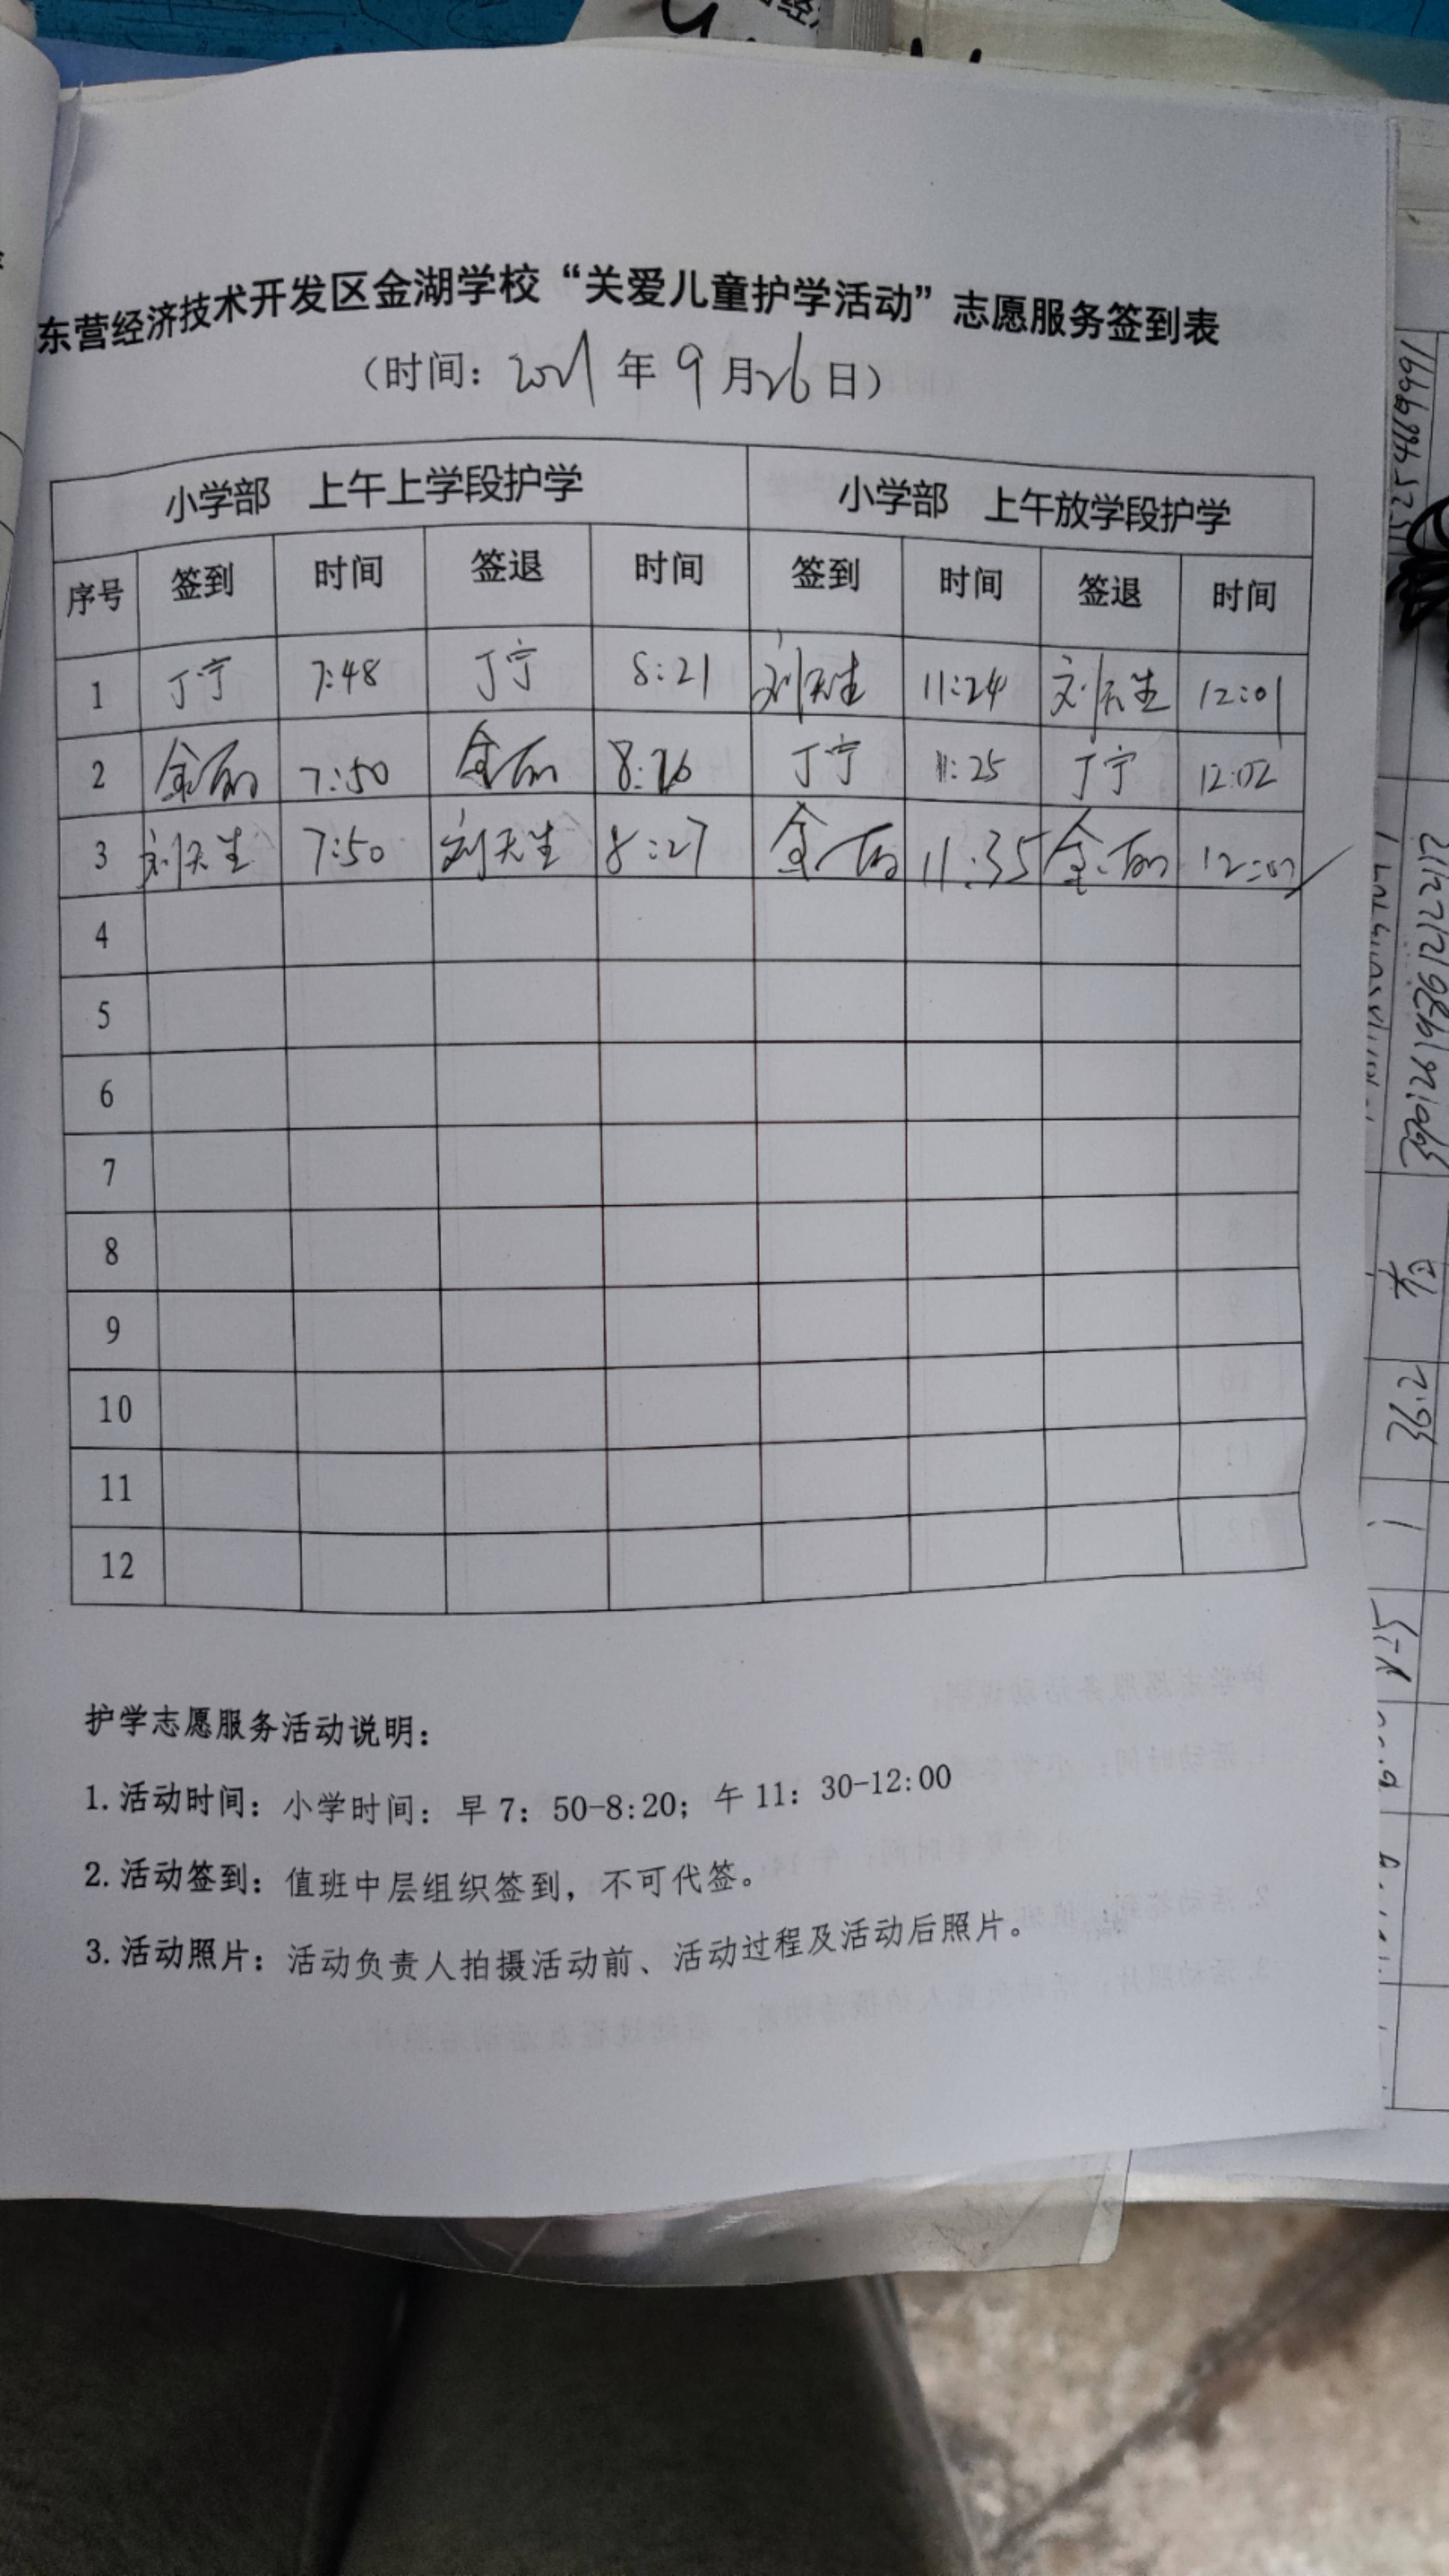 东营经济技术开发区金湖学校“关爱儿童护学活动”志愿服务签到表
（时间：2021年9月26日）
小学部 上午上学段护学 小学部 上午放学段护学
序号 签到 时间 签退 时间 签到 时间 签退 时间
1 丁宁 7:48 丁宁 8:21 刘天生 11:24 刘天生 12:01
2 金丽 7:50 金丽 8:26 丁宁 11:25 丁宁 12:02
3 刘天生 7:50 刘天生 8:27 金丽 11:35 金丽 12:07
4
5
6
7
8
9
10
11
12
护学志愿服务活动说明：
1.活动时间：小学时间：早7：50-8:20；午11：30-12:00
2.活动签到：值班中层组织签到，不可代签。
3.活动照片：活动负责人拍摄活动前、活动过程及活动后照片。